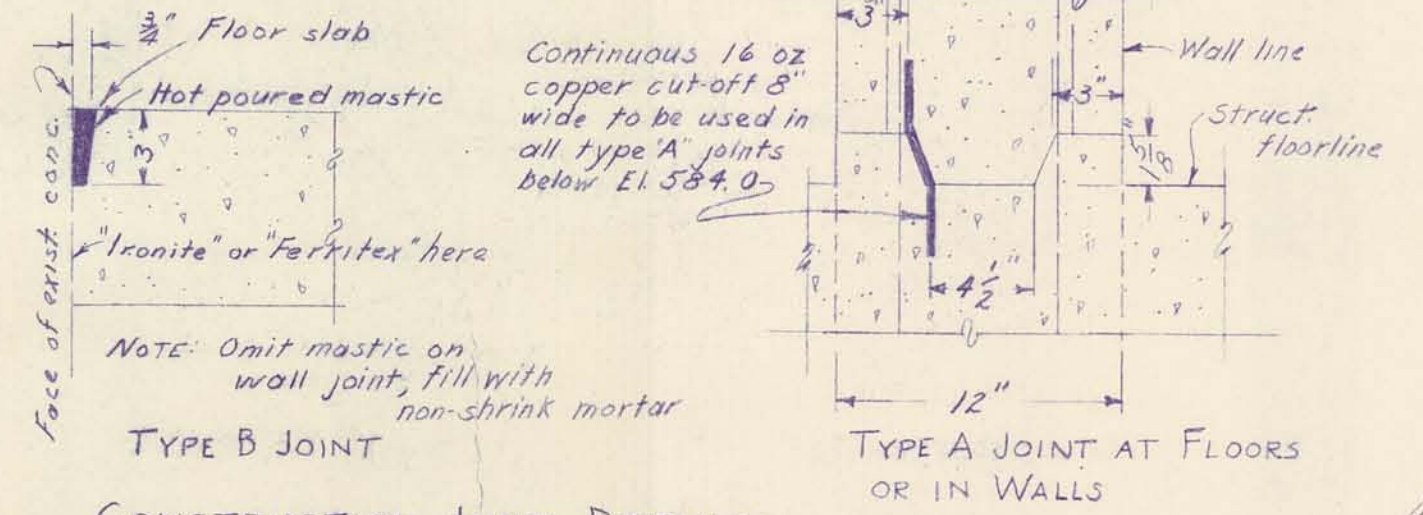 3/4" Floor slab
Hot poured mastic
3"
Face of exist. conc.
"Ironite" or "Ferritex" here
NOTE: Omit mastic on
wall joint, fill with
non-shrink mortar
TYPE B JOINT
Continuous 16 oz
copper cut-off 8"
wide to be used in
all type "A" joints
below El. 584.0
3"
Wall line
3"
Struct.
floorline
1 5/8"
4 1/2"
12"
TYPE A JOINT AT FLOORS
OR IN WALLS